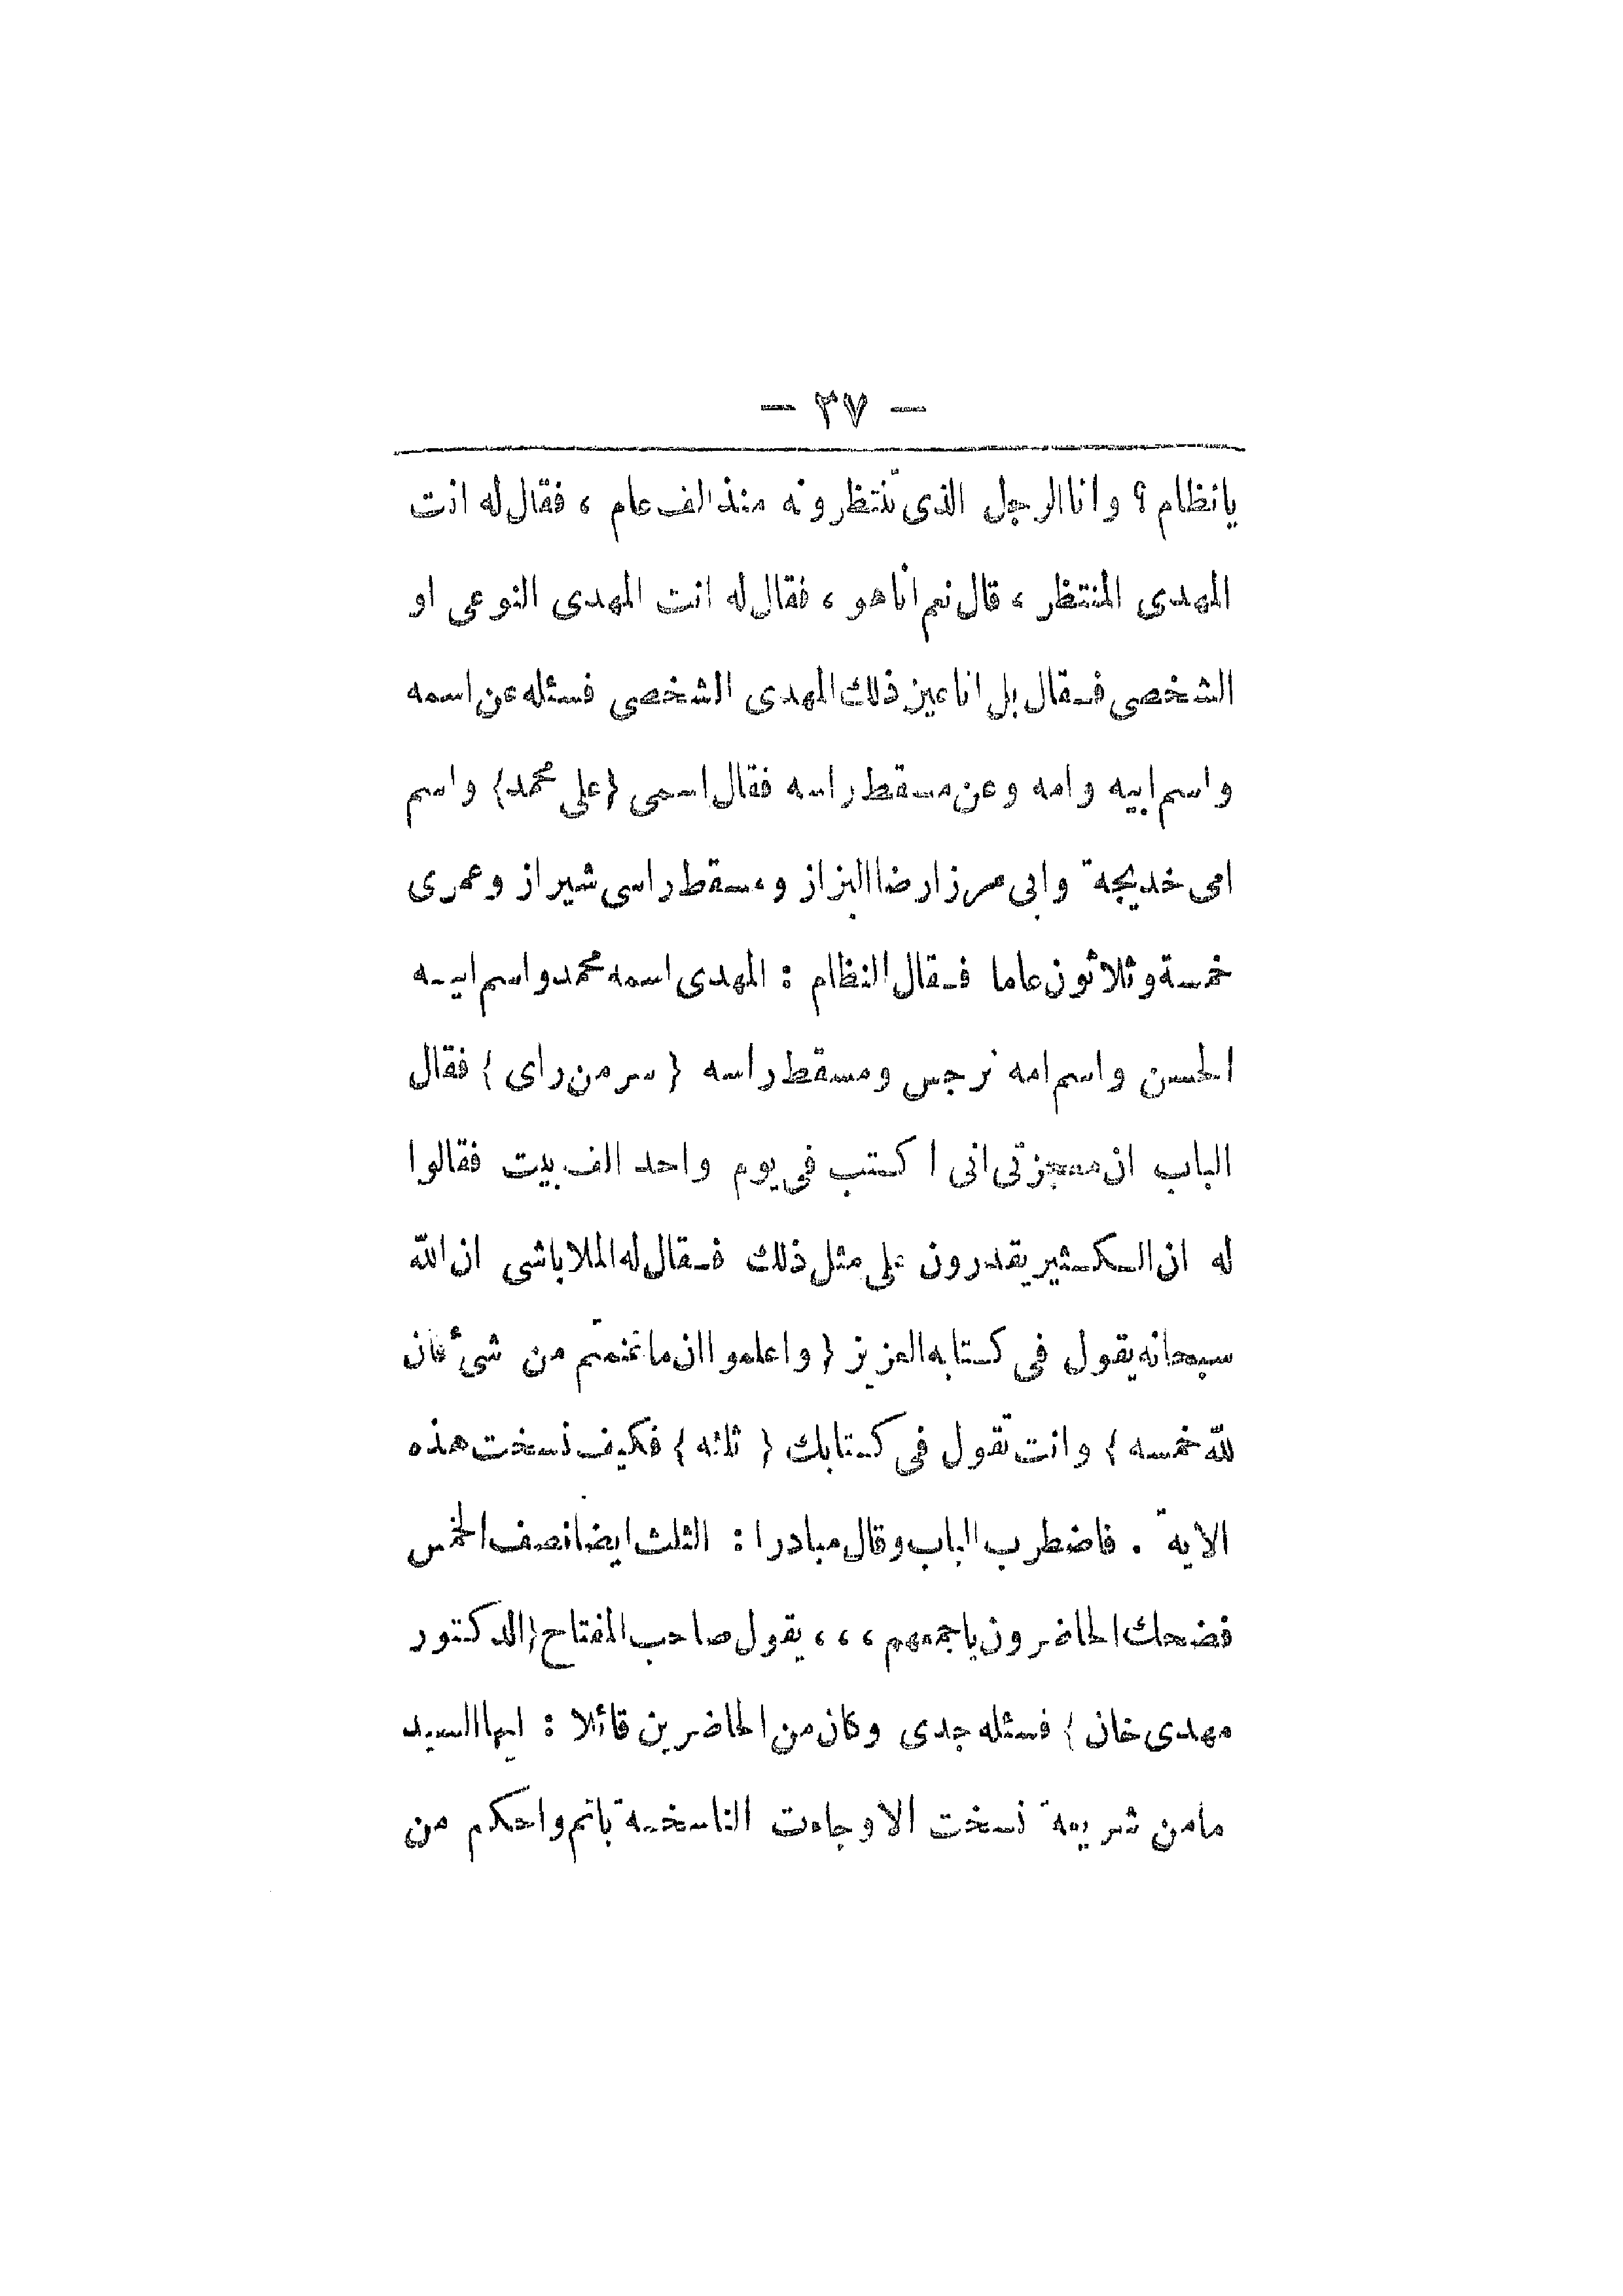 — ٣٧ —
يانظام ؟ وانا الرجل الذى تنتظرونه منذ الف عام ، فقال له انت
المهدى المنتظر ، قال نعم اناهو ، فقال له انت المهدى النوعى او
الشخصى فقال بل انا عين ذلك المهدى الشخصى فسئله عن اسمه
واسم ابيه وامه وعن مسقط راسه فقال اسمى {على محمد} واسم
امى خديجة وابى مرزا رضا البزاز ومسقط راسى شيراز وعمرى
خمسة وثلاثون عاما فقال النظام : المهدى اسمه محمد واسم ابيه
الحسن واسم امه نرجس ومسقط راسه { سر من راى } فقال
الباب ان معجزتى انى اكتب فى يوم واحد الف بيت فقالوا
له ان الكثير يقدرون على مثل ذلك فقال له الملا باشى ان الله
سبحانه يقول فى كتابه العزيز { واعلموا ان ما غنمتم من شىء فان
لله خمسه } وانت تقول فى كتابك { ثلثه } فكيف نسخت هذه
الاية . فاضطرب الباب وقال مبادرا : الثلث ايضا نصف الخمس
فضحك الحاضرون باجمعهم ، ، ، يقول صاحب المفتاح {الدكتور
مهدى خان } فسئله جدى وكان من الحاضرين قائلا : ايها السيد
مامن شريعة نسخت الا وجاءت الناسخة باتم واحكم من